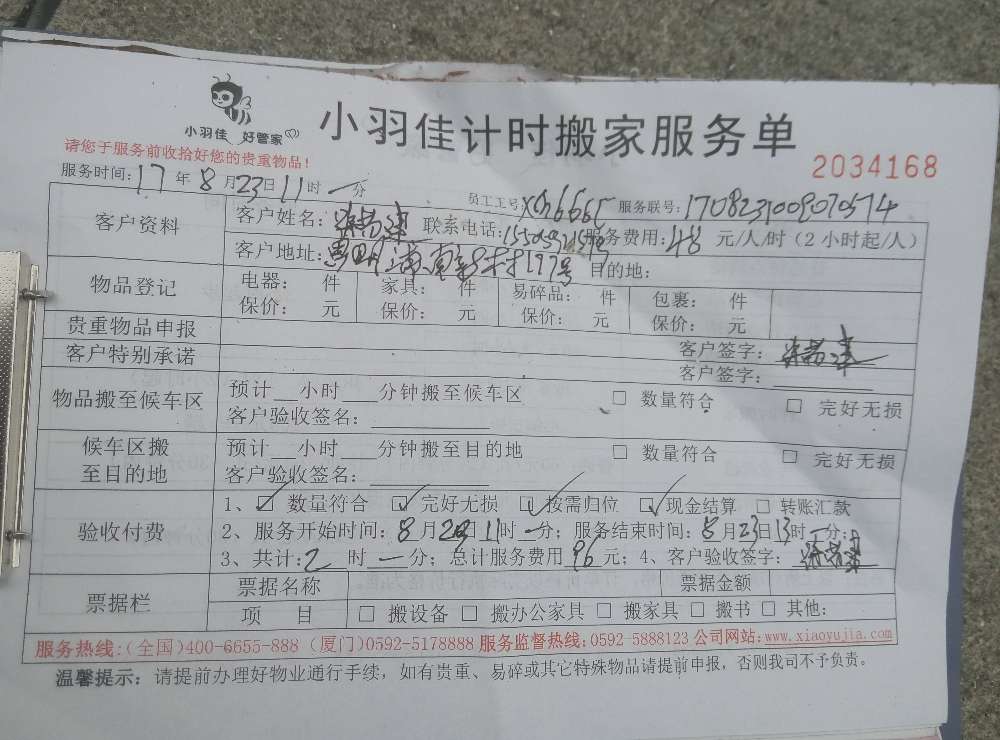 小羽佳 好管家
小羽佳计时搬家服务单
2034168
请您于服务前收拾好您的贵重物品!
服务时间:17年8月23日11时一分
员工工号: 服务联号:
客户资料
客户姓名: 联系电话: 服务费用:48元/人/时(2小时起/人)
客户地址: 目的地:
物品登记
电器: 件 家具: 件 易碎品: 件 包裹: 件
保价: 元 保价: 元 保价: 元 保价: 元
贵重物品申报
客户签字:
客户特别承诺
客户签字:
物品搬至候车区
预计__小时___分钟搬至候车区 □ 数量符合 □ 完好无损
客户验收签名:
候车区搬至目的地
预计__小时___分钟搬至目的地 □ 数量符合 □ 完好无损
客户验收签名:
验收付费
1、☑ 数量符合 ☑ 完好无损 ☑ 按需归位 ☑ 现金结算 □ 转账汇款
2、服务开始时间:8月23日11时一分;服务结束时间:8月23日13时一分;
3、共计:2时一分;总计服务费用96元;4、客户验收签字:
票据栏
票据名称 票据金额
项 目 □ 搬设备 □ 搬办公家具 □ 搬家具 □ 搬书 □ 其他:
服务热线:(全国)400-6655-888 (厦门)0592-5178888 服务监督热线:0592-5888123 公司网站:www.xiaoyujia.com
温馨提示:请提前办理好物业通行手续,如有贵重、易碎或其它特殊物品请提前申报,否则我司不予负责。